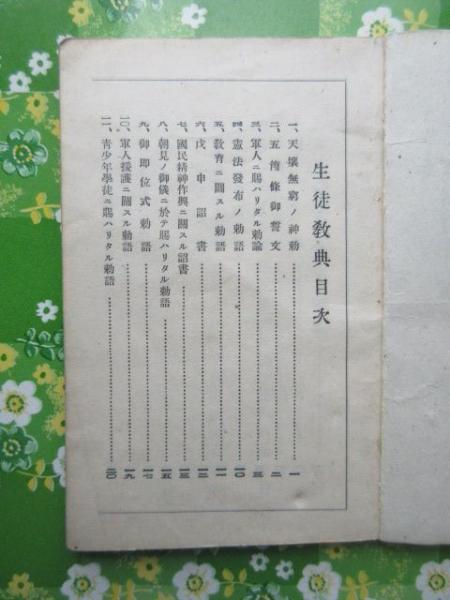 生徒教典目次
一、天壤無窮ノ神勅……一
二、五箇條御誓文……二
三、軍人ニ賜ハリタル勅諭……三
四、憲法發布ノ勅語……一〇
五、教育ニ關スル勅語……一一
六、戊申詔書……一二
七、國民精神作興ニ關スル詔書……一三
八、朝見ノ御儀ニ於テ賜ハリタル勅語……一五
九、御即位式勅語……一七
一〇、軍人援護ニ關スル勅語……一九
一一、青少年學徒ニ賜ハリタル勅語……二〇